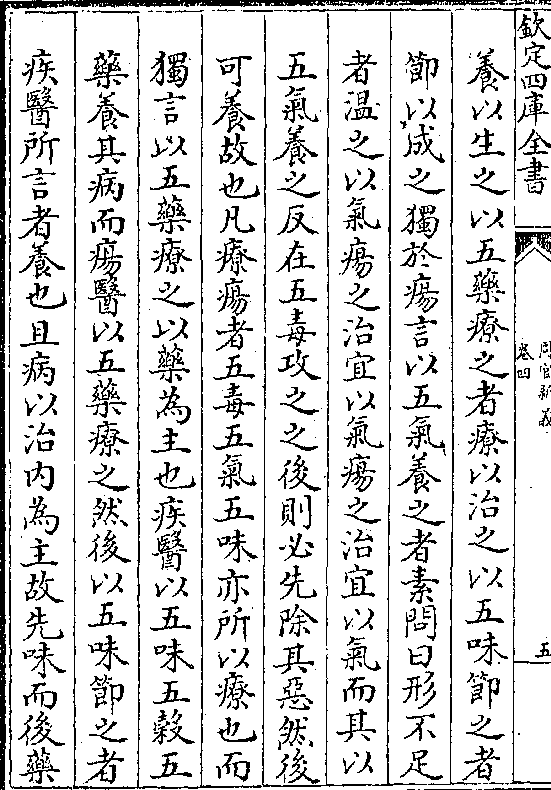 欽定四庫全書
周官新義
卷四
五
養以生之以五藥療之者療以治之以五味節之者
節以成之獨於瘍言以五氣養之者素問曰形不足
者温之以氣瘍之治宜以氣瘍之治宜以氣而其以
五氣養之反在五毒攻之之後則必先除其惡然後
可養故也凡療瘍者五毒五氣五味亦所以療也而
獨言以五藥療之以藥為主也疾醫以五味五榖五
藥養其病而瘍醫以五藥療之然後以五味節之者
疾醫所言者養也且病以治内為主故先味而後藥